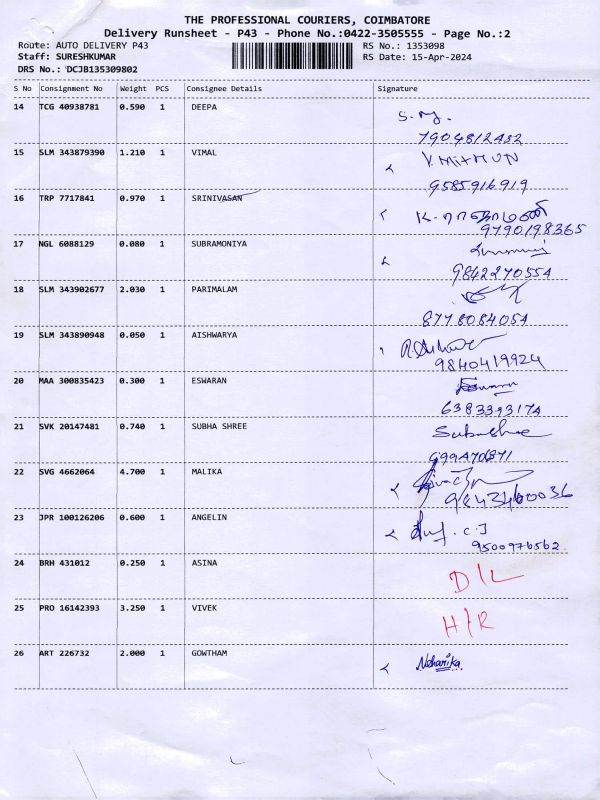 THE PROFESSIONAL COURIERS, COIMBATORE
Delivery Runsheet - P43 - Phone No.:0422-3505555 - Page No.:2
Route: AUTO DELIVERY P43 RS No.: 1353098
Staff: SURESHKUMAR RS Date: 15-Apr-2024
DRS No.: DCJB135309802
S No Consignment No Weight PCS Consignee Details Signature
14 TCG 40938781 0.590 1 DEEPA
7904812432
15 SLM 343879390 1.210 1 VIMAL V.MitHUN
9585916919
16 TRP 7717841 0.970 1 SRINIVASAN
9790198365
17 NGL 6088129 0.080 1 SUBRAMONIYA
9842270554
18 SLM 343902677 2.030 1 PARIMALAM
8778084054
19 SLM 343890948 0.050 1 AISHWARYA
9840419924
20 MAA 300835423 0.300 1 ESWARAN
6383393174
21 SVK 20147481 0.740 1 SUBHA SHREE
22 SVG 4662064 4.700 1 MALIKA
23 JPR 100126206 0.600 1 ANGELIN
9500976562
24 BRH 431012 0.250 1 ASINA D/L
25 PRO 16142393 3.250 1 VIVEK H/R
26 ART 226732 2.000 1 GOWTHAM Niharika